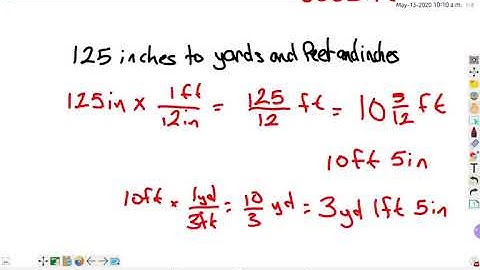 May-13-2020 10:10 a.m.
125 inches to yards and feet and inches
125in × 1ft/12in = 125/12 ft = 10 5/12 ft
10ft 5in
10ft × 1yd/3ft = 10/3 yd = 3yd 1ft 5in